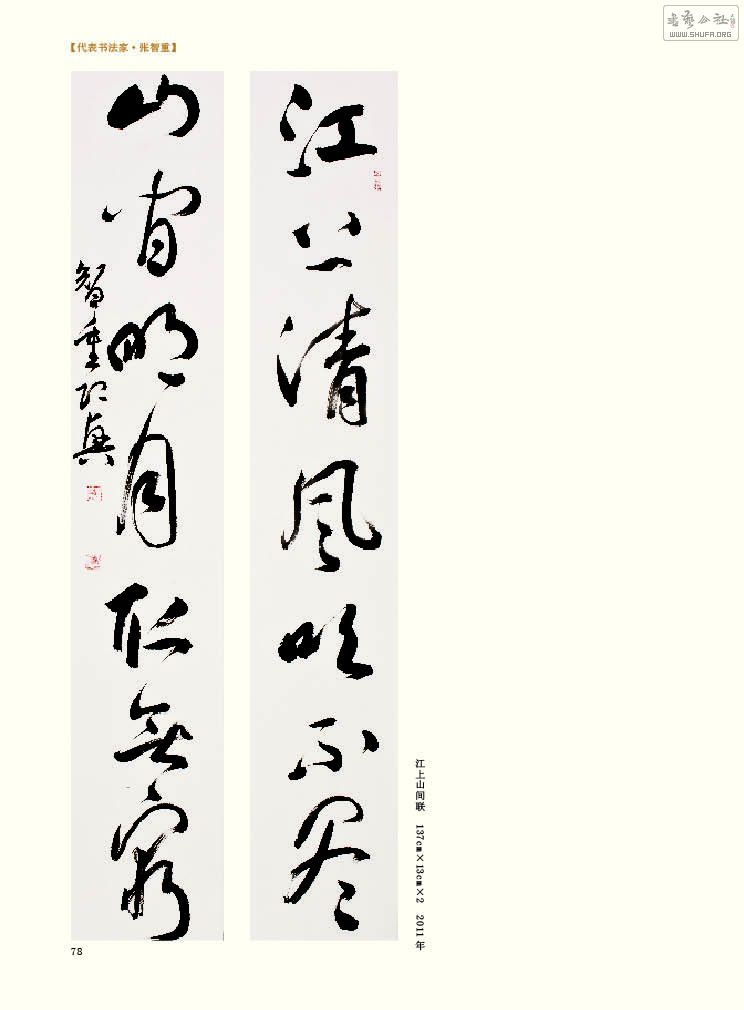 书艺公社
WWW.SHUFA.ORG
【代表书法家·张智重】
江上清風吹不尽
山间明月取無窮
智重即興
江上山间联 137cm×13cm×2 2011年
78